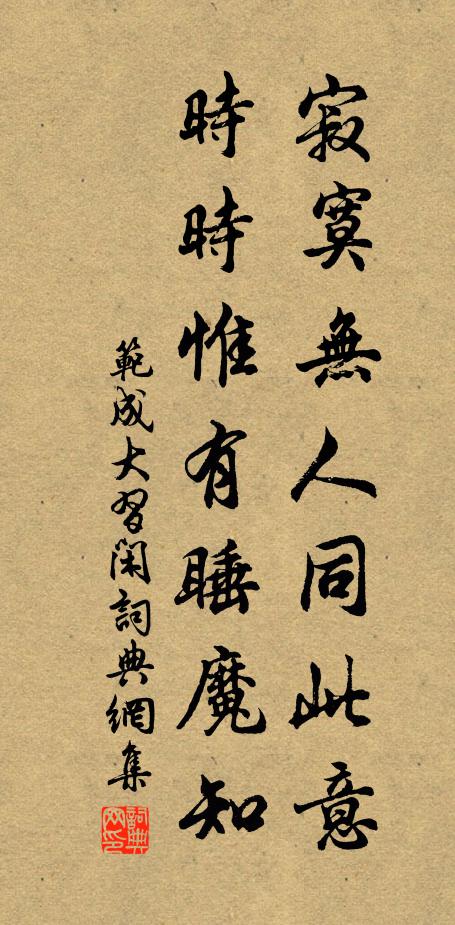 寂寞無人同此意
時時惟有睡魔知
範成大習閑詞典網集
詞典網印